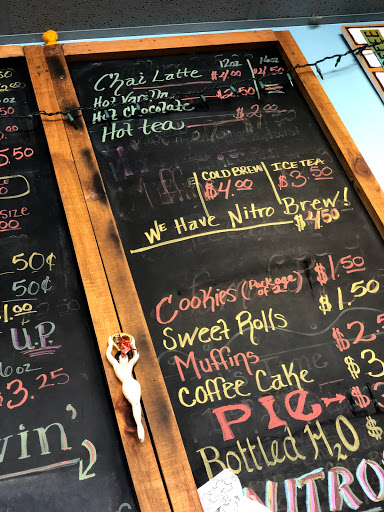 12oz 16oz
Chai Latte $4.00 $4.50
Hot Vanilla
Hot Chocolate $2.50
Hot tea $2.00
COLD BREW ICE TEA
$4.00 $3.50
WE HAVE NITRO BREW!
$4/50
Cookies (Package of 2) $1.50
SWEET ROLLS $1.50
MUFFINS $2.5
COFFEE CAKE $3
PIE → $3.
BOTTLED H2O $
NITRO
5.50
SIZE
0.00
50¢
50¢
$1.00
U.P.
6oz
$3.25
win'